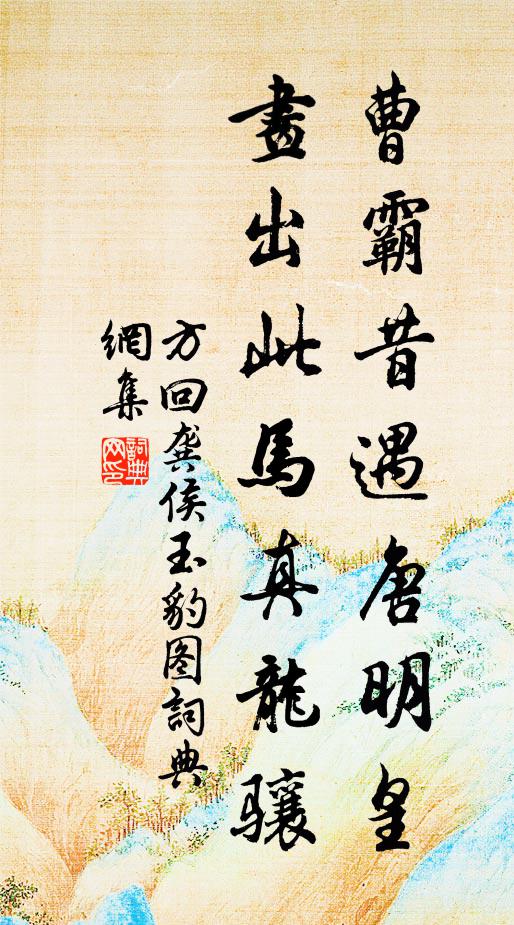 曹霸昔遇唐明皇
畫出此馬真龍驤
方回龚侯玉豹图詞典
網集
詞典
网印